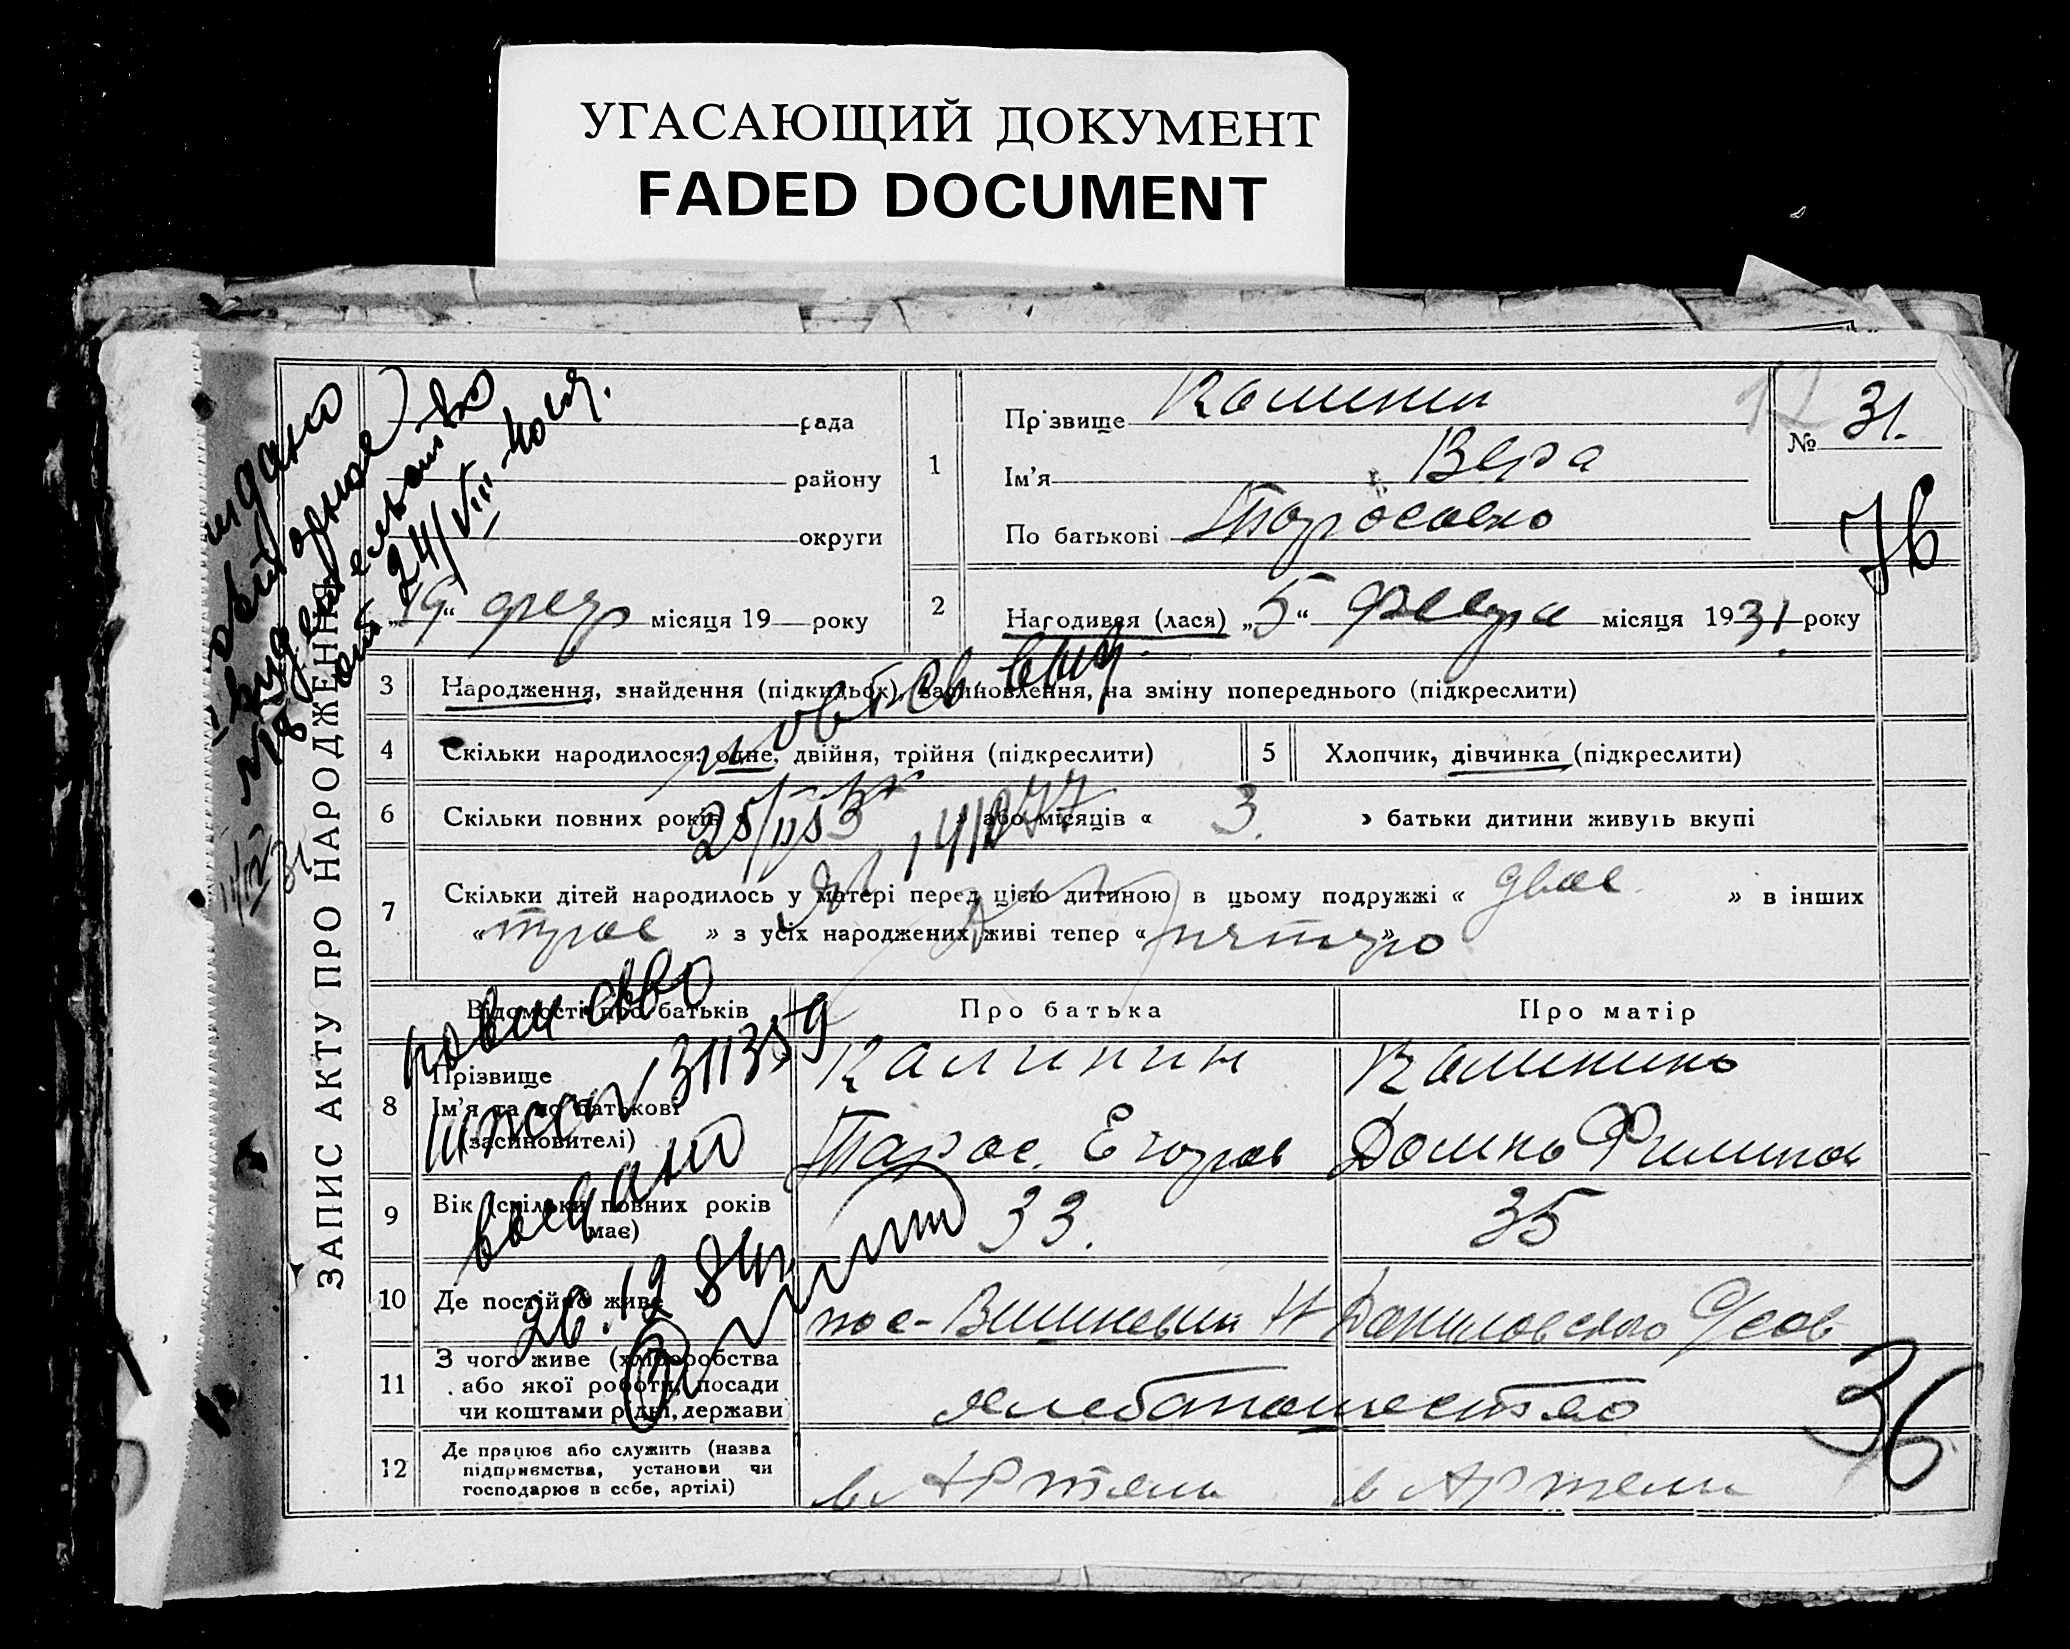 УГАСАЮЩИЙ ДОКУМЕНТ
FADED DOCUMENT
ЗАПИС АКТУ ПРО НАРОДЖЕННЯ
рада
району
округи
„19“ февр місяця 19 року
1
Прізвище Калинин
Ім'я Вера
По батькові Тарасовно
№ 31.
2
Народився (лася) „5“ февра місяця 1931. року
3 Народження, знайдення (підкидьок), засиновлення, на зміну попереднього (підкреслити)
4 Скільки народилося: одне, двійня, трійня (підкреслити)
5 Хлопчик, дівчинка (підкреслити)
6 Скільки повних років або місяців « 3. » батьки дитини живуть вкупі
7 Скільки дітей народилось у матері перед цією дитиною в цьому подружжі « двое » в інших
« трое » з усіх народжених живі тепер « пятеро »
Відомості про батьків Про батька Про матір
8 Прізвище Калинин Калинино
Ім'я та по батькові Тарас. Егоров Домно Филипов
(засиновителі)
9 Вік (скільки повних років має) 33. 35
10 Де постійно живе пос-Вишневый
11 З чого живе (хліборобства
або якої роботи, посади
чи коштами рідні, держави
12 Де працює або служить (назва
підприємства, установи чи
господарює в себе, артілі)
в Артели в Артели
видано
24/VIII
новий
свво
311359
выдано
26.12.84
36